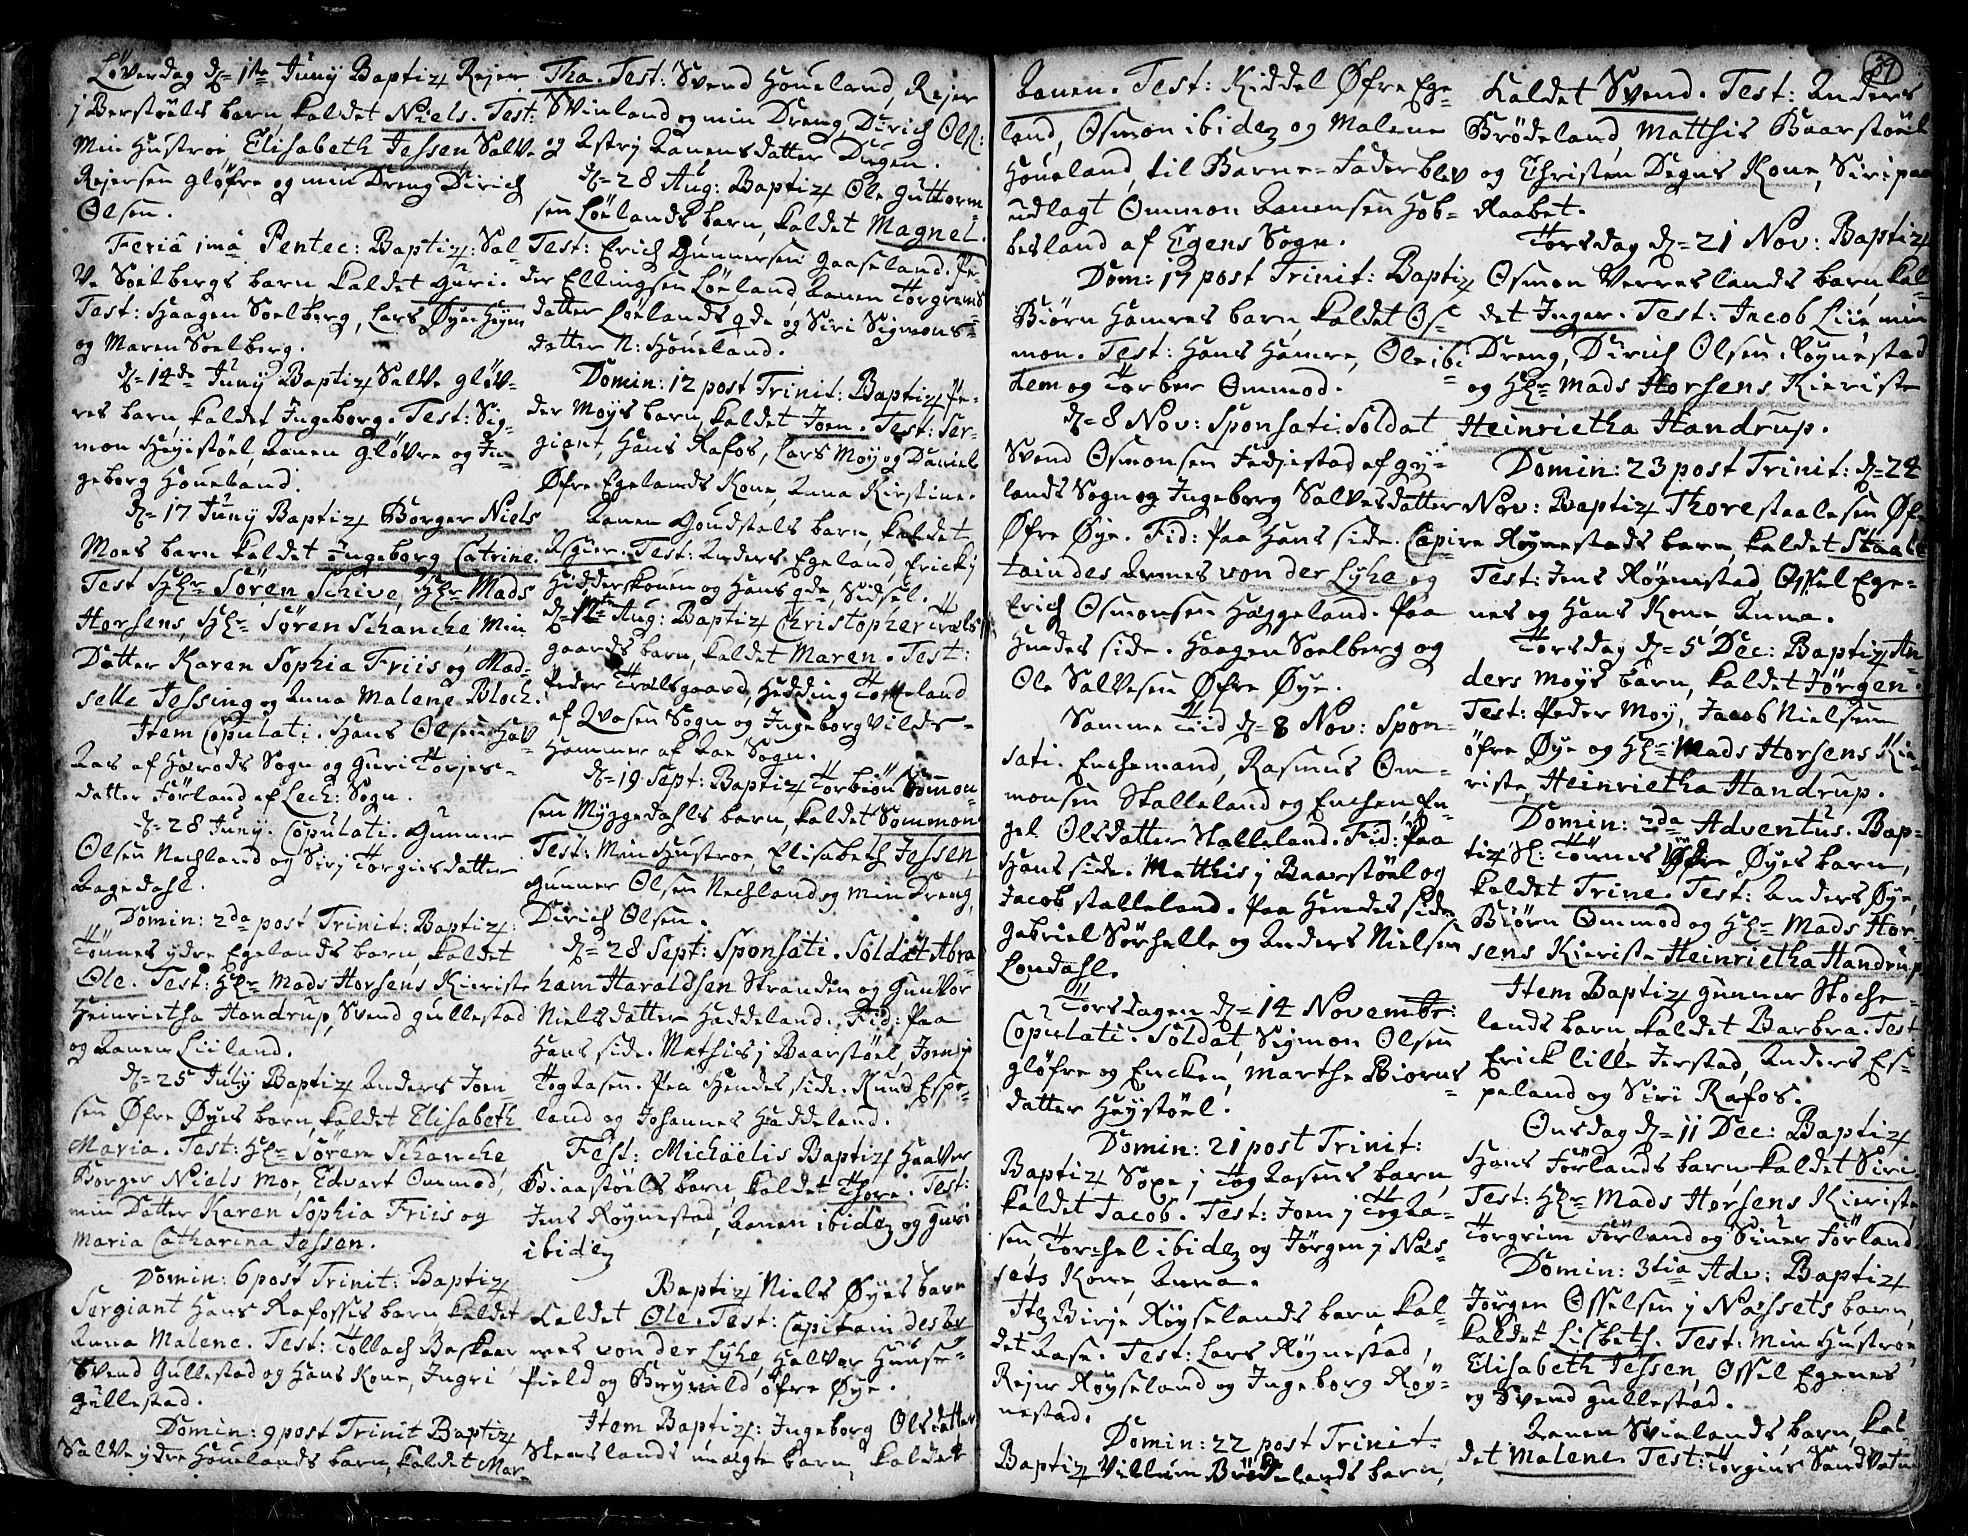 Löverdag d= 1ste Juny Baptiz Rejer
i Berstöels barn kaldet Niels. Test:
min Hustroe Elisabeth Jessen Salve
Rejersen Gløfre og min Dreng Dirich
Olsen.
Feriâ 1mâ Pentec: Baptiz: Sal-
ve Soelbergs barn kaldet Guri.
Test: Haagen Soelberg, Lars Øyen Heyn
og Maren Soelberg.
d= 14de Juny Baptiz Salve Gløv-
res barn, kaldet Ingeborg. Test: Sig-
mon Heyestöel, Aanen Gløvre og In-
geborg Houeland.
d= 17 Juny Baptiz Borger Niels
Moes barn kaldet Ingeborg Catrine.
Test Hr Sören Schive, Hr Mads
Horsens, Hr Sören Schanche, Min
Datter Karen Sophia Friis og Mad-
selle Jessing og Anna Malene Bloch.
Item Copulati. Hans Olsen Hav-
Aas af Herods Sogn og Guri Torjes-
datter Förland af Lech: Sogn.
d= 28 Juny. Copulati. Gunner
Olsen Nechland og Siri Torgiersdatter
Aagedahl.
Domin: 2da post Trinit: Baptiz:
Tönnes ydre Egelands barn, kaldet
Ole. Test: Hr Mads Horsens Kieriste
Heinrietha Handrup, Svend Gullestad
og Aanen Liiland.
d= 25 July Baptiz Anders Joen
sen Øfre Øyes barn, kaldet Elisabeth
Maria. Test: Hr Sören Schanche,
Borger Niels Moe, Edvart Ommod,
min Datter Karen Sophia Friis og
Maria Catharina Jessen.
Domin: 6 post Trinit: Baptiz
Sergiant Hans Rafosses barn, kaldet
Anna Malene. Test: Tollach Baskaar
Svend Gullestad og Hans Kone, Ingri
Gullestad.
Domin: 9 post Trinit Baptiz
Salve ydre Houelands barn, kaldet Mar-
Tha. Test: Svend Houeland, Rejer
Svinland og min Dreng Dirich Ols:
og Astri Aanensdatter Dugen.
d= 28 Aug: Baptiz Ole Guttorm-
sen Löelands barn, kaldet Magnel.
Test: Erich Gunnersen Gaaseland. Pe-
der Ellingsen Löeland, Aanen Torgrims
datter Löelands qde og Siri Sigmons-
datter N: Houeland.
Domin: 12 post Trinit: Baptiz Pe-
der Moys barn, kaldet Joen. Test: Ser-
giant, Hans Rafos, Lars Moy og Daniel
Øfre Egelands Kone, Anna Kirstine.
Aanen Gondstals barn, kaldet
Asgier. Test: Anders Egeland, Erick i
Hidderskouen og Hans qde, Sidsel.
Aug: Baptiz Christopher Træls
gaards barn, kaldet Maren. Test:
Peder Trælsgaard, Hedding Totteland
af Qvasen Sogn og Ingeborg Vilds-
Hammer af Aae Sogn.
d= 19 Sept: Baptiz Torbiön Sömon-
sen Myggedahls barn, kaldet Sommon
Test: Min Hustroe, Elisabeth Jessen,
Gunner Olsen Nechland og Min Dreng,
Dirich Olsen.
d= 28 Sept: Sponsati. Soldat Abra-
ham Haraldsen Stranden og Gunvor
Nielsdatter Haddeland. Fid: Paa
Hans side. Mathis i Baarstöel, Joen i
Togaasen. Paa Hendes side. Knud Espe-
land og Johannes Haddeland.
Fest: Michaëlis Baptiz Haaver
Biaastöels barn, kaldet Thore. Test:
Jens Röynestad, Aanen ibidem og Guri
ibidem
Baptiz Niels Øyes barn
Kaldet Ole. Test: Capitain des Ar
mes von der Lyhe, Halvor Hunse-
field og Brynild øfre Øye.
Item Baptiz: Ingeborg Olsdatter
Stenslands uægte barn, kaldet
39
Aanen. Test: Kiddel Øfre Ege-
land, Osmon ibidem og Malene
Houeland, til Barne-fader blev
udlagt Ommon Aanensen Hob-
besland af Egens Sogn.
Dom: 17 post Trinit: Baptiz
Biörn Hamres barn, kaldet Os-
mon. Test: Hans Hamre, Ole ibi-
dem og Torber Ommod.
d= 8 Nov: Sponsati. Soldat
Svend Osmonsen Fedjestad af Gy-
lands Sogn og Ingeborg Salvesdatter
Øfre Øye. Fid: Paa Hans side. Capi-
tain des Armes von der Lyhe og
Erich Osmonsen Heggeland. Paa
Hendes side. Haagen Soelberg og
Ole Salvesen Øfre Øye.
Samme Tiid d= 8 Nov: Spon-
sati. Enchemand, Rasmus Om-
monsen Stalleland og Enchen, En-
gel Olsdatter Stalleland. Fid: Paa
Hans side. Matthis i Baarstöel og
Jacob Stalleland. Paa Hendes side
Gabriel Sörhelle og Anders Nielsen
Londahl.
Torsdagen d= 14 Novembr:
Copulati. Soldat, Sigmon Olsen
Gløfre og Encken, Marthe Biorns-
datter Heystöel.
Domin: 21 post Trinit:
Baptiz Soxe i Togaasens barn,
kaldet Jacob. Test: Joen i Togaa-
sen, Torchel ibidem og Jörgen i Næs-
sets Kone, Anna.
Item Birje Röyselands barn, kal-
det Aase. Test: Lars Röynestad,
Rejer Röyseland og Ingeborg Röy-
nestad.
Domin: 22 post Trinit:
Baptiz Villum Brödelands barn,
Kaldet Svend. Test: Anders
Brödeland, Matthis Baarstöel
og Christen Degns Kone, Siri paa
Raabet.
Torsdag d= 21 Nov: Baptiz
Osmon Verreslands barn, kal-
det Inger. Test: Jacob Liie min
Dreng, Dirich Olsen. Röynestad
og Hr Mads Horsens Kieriste
Heinrietha Handrup.
Domin: 23 post Trinit: d= 24
Nov: Baptiz Thore Staalesen Øf-
re Röynestads barn, kaldet Staale
Test: Jens Röynestad, Ossel Ege-
nes og Hans Kone Anna.
Torsdag d= 5 Dec: Baptiz An
ders Moys barn, kaldet Jörgen.
Test: Peder Moy, Jacob Nielsen
øfre Øye og Hr Mads Horsens Kie-
riste, Heinrietha Handrup.
Domin: 2da Adventus. Bap-
tiz Sl: Tönnes Øfre Øyes barn,
kaldet Trine. Test: Anders Øye,
Biörn Ommod og Hr Mads Hor-
sens Kieriste Heinrietha Handrup
Item Baptiz Gunner Stoche-
lands barn, kaldet Barbra. Test
Erick lille Jerstad, Anders Es-
peland og Siri Rafos.
Onsdag d= 11 Dec: Baptiz
Hans Förlands barn, kaldet Siri.
Test: Hr Mads Horsens Kieriste,
Torgrim Förland og Siver Förland.
Domin: 3tia Adv: Baptiz
Jörgen Osselsen i Næssets barn,
kaldet Lisbeth. Test: Min Hustroe,
Elisabeth Jessen, Ossel Egenes
og Svend Gullestad.
Aanen Svinlands barn, kal-
det Malene. Test: Torgius Sandvatn